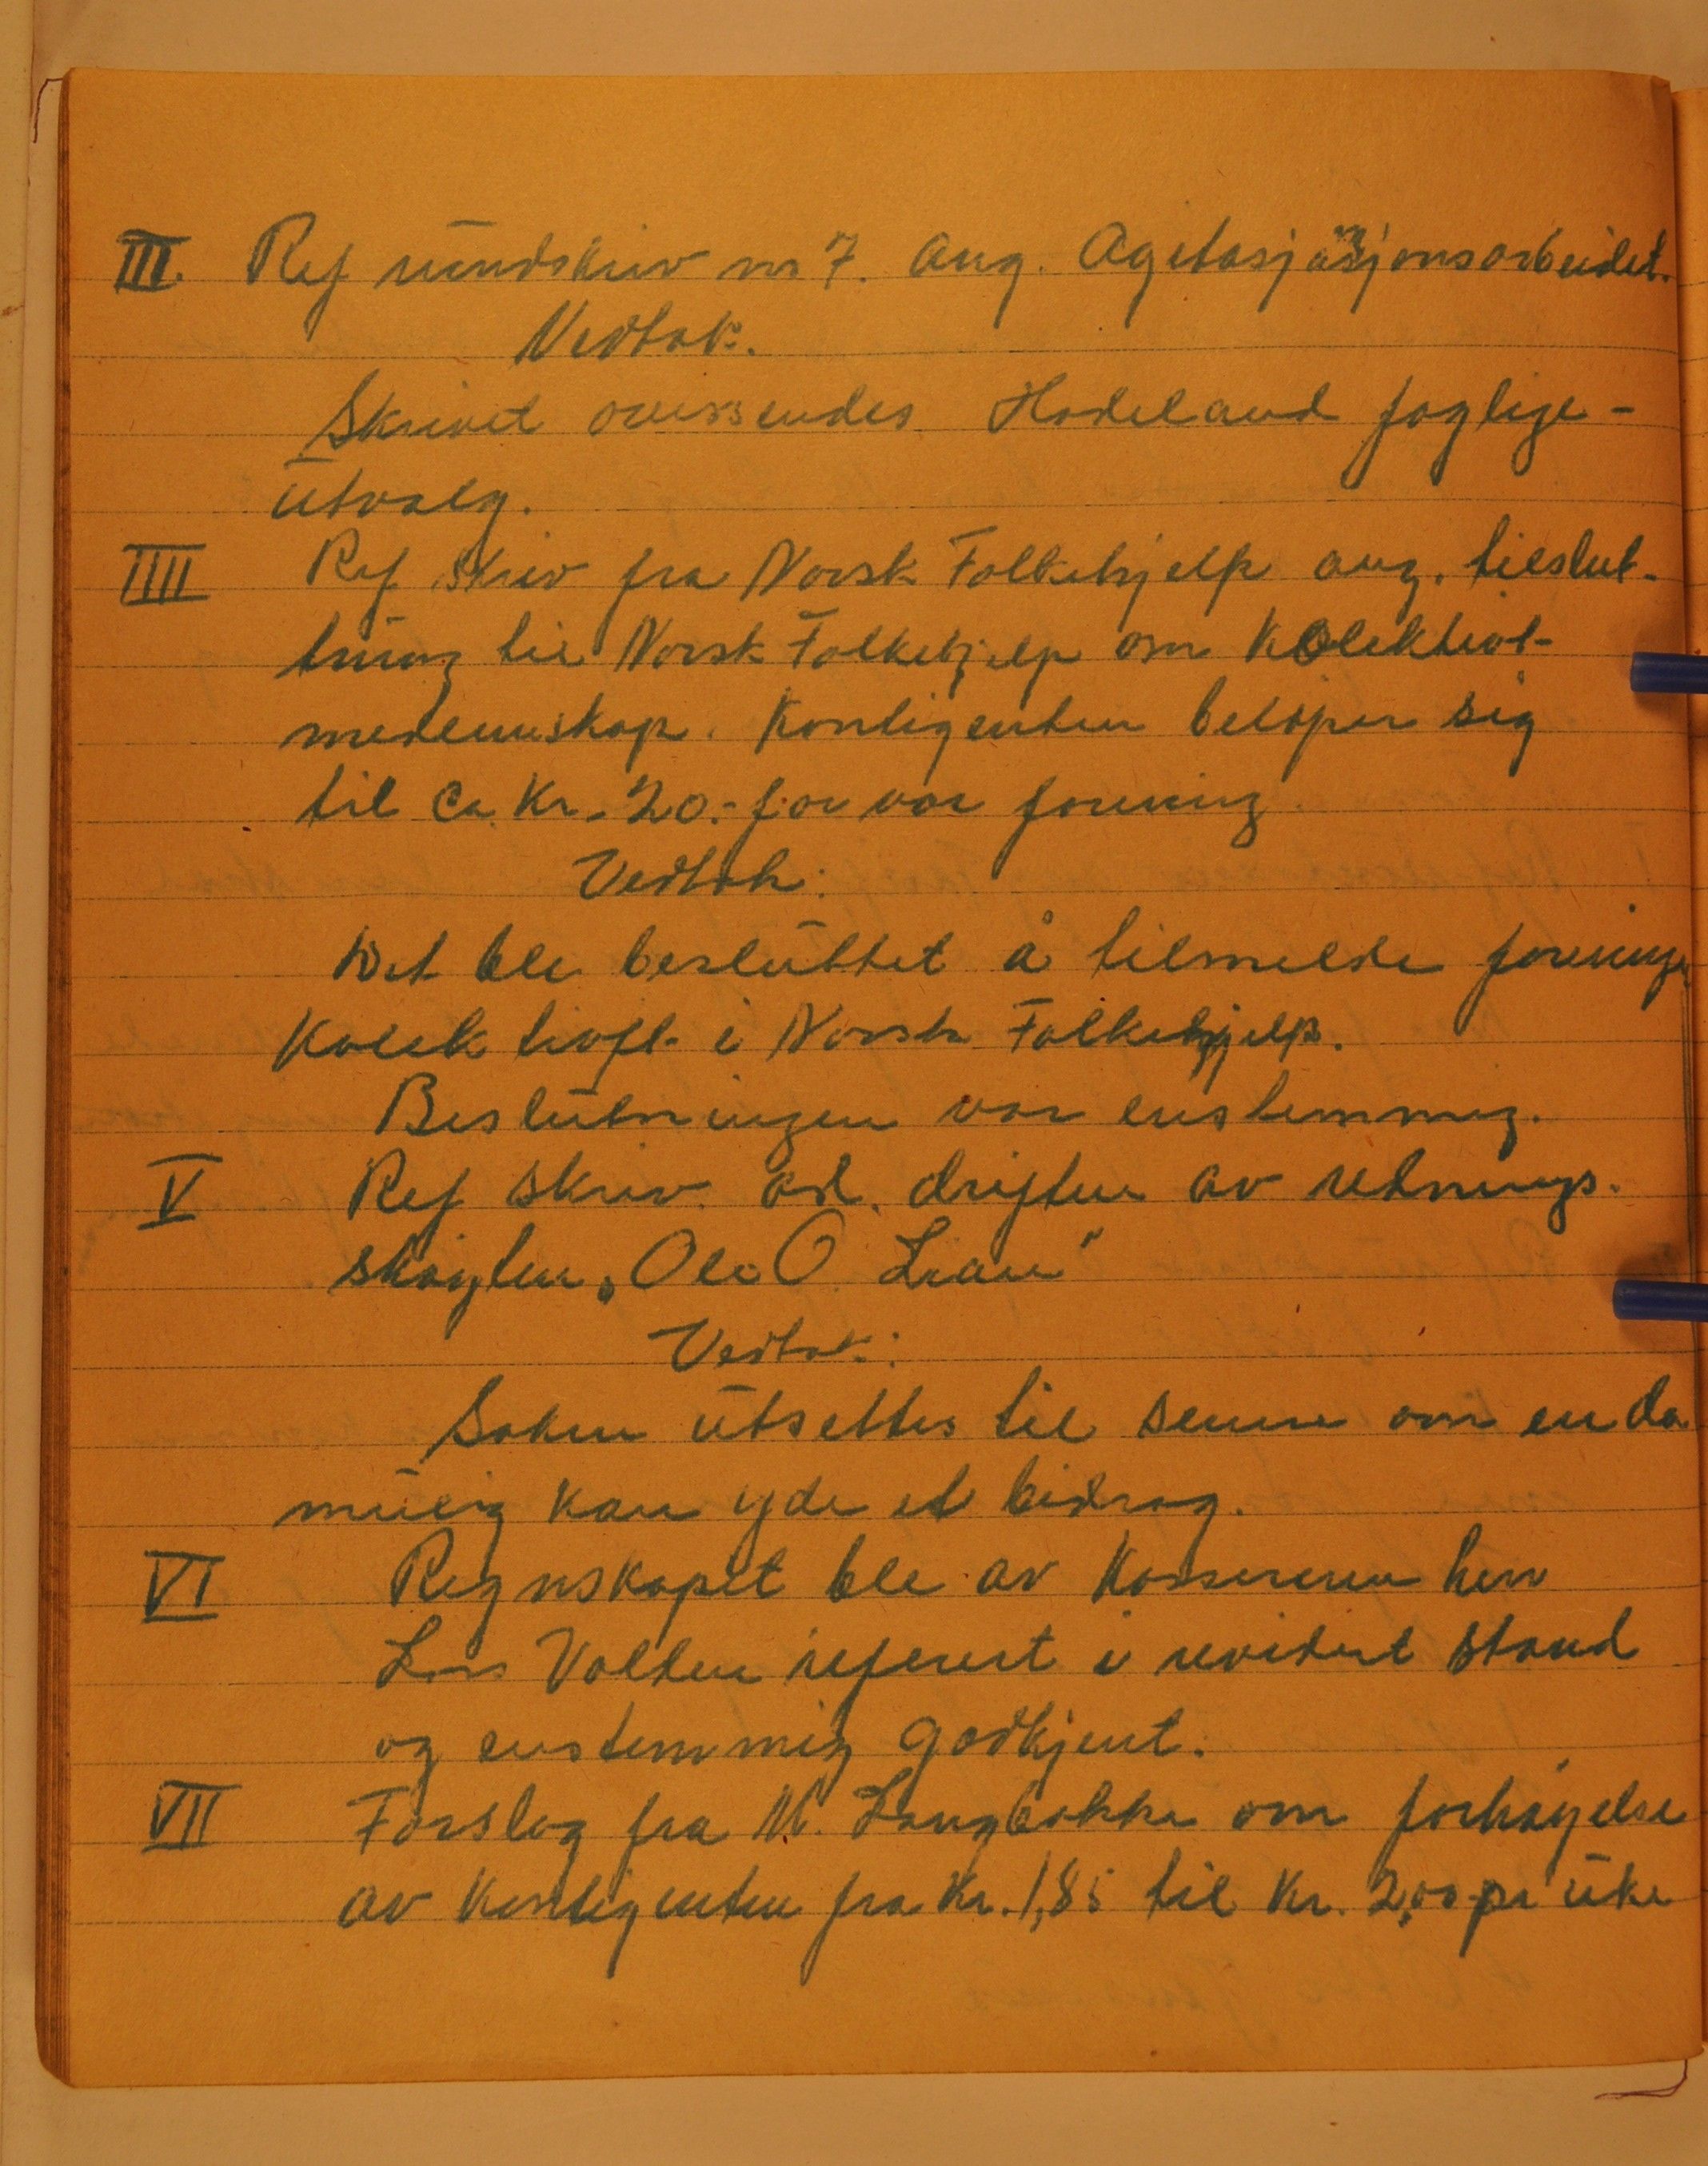 III. Ref rundskriv nr 7. ang. Agitasjonsarbeidet.
Vedtak.
Skrivet oversendes Hadeland faglige-
utvalg.
IIII Ref skriv fra Norsk Folkehjelp ang. tilslut-
tning til Norsk Folkehjelp om Kolektivt-
medlemskap. Kontigenten beløper sig
til Ca. Kr. 20.- for vor forening
Vedtak:
Det ble besluttet å tilmelde foreningen
Kolektivt i Norsk Folkehjelp.
Beslutningen var enstemmig.
V Ref skriv. ad. driften av retnings-
skøyten „Ole O Lian"
Vedtak:
Saken utsettes til senere om en da
mulig kan yde et bidrag.
VI Regnskapet ble av Kassereren herr
Lars Volden referert i revidert stand
og enstemmig godkjent.
VII Forslag fra M. Langbakke om forhøyelse
av Kontigenten fra Kr. 1,85 til Kr. 2,00 pr uke